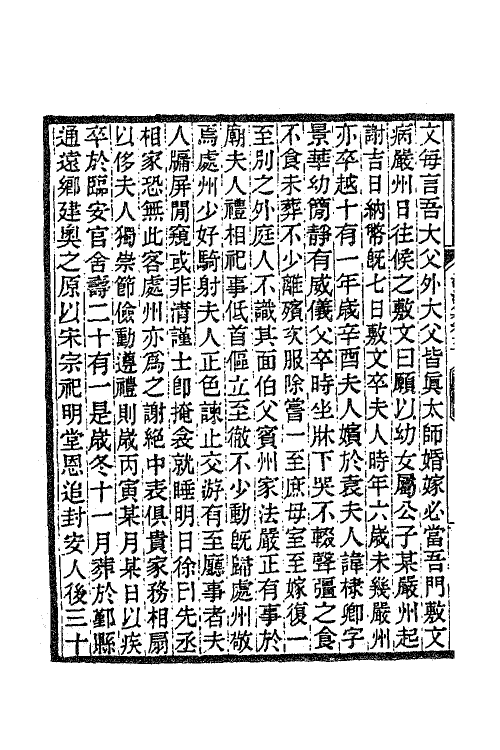 文每言吾大父外大父皆眞太師婚嫁必當吾門敷文
病嚴州日往候之敷文曰願以幼女屬公子某嚴州起
謝吉日納幣既七日敷文卒夫人時年六歲未幾嚴州
亦卒越十有一年歲辛酉夫人嬪於袁夫人諱棣卿字
景華幼簡靜有威儀父卒時坐牀下哭不輟聲彊之食
不食未葬不少離殯次服除嘗一至庶母室至嫁復一
至別之外庭人不識其面伯父賓州家法嚴正有事於
廟夫人禮相祀事低首傴立至徹不少動既歸處州敬
焉處州少好騎射夫人正色諫止交游有至廳事者夫
人牖屏閒窺或非清謹士卽掩衾就睡明日徐曰先丞
相家恐無此客處州亦爲之謝絕中表俱貴家務相扇
以侈夫人獨崇節儉動遵禮則歲丙寅某月某日以疾
卒於臨安官舍壽二十有一是歲冬十一月葬於鄞縣
通遠鄉建奧之原以宋宗祀明堂恩追封安人後三十